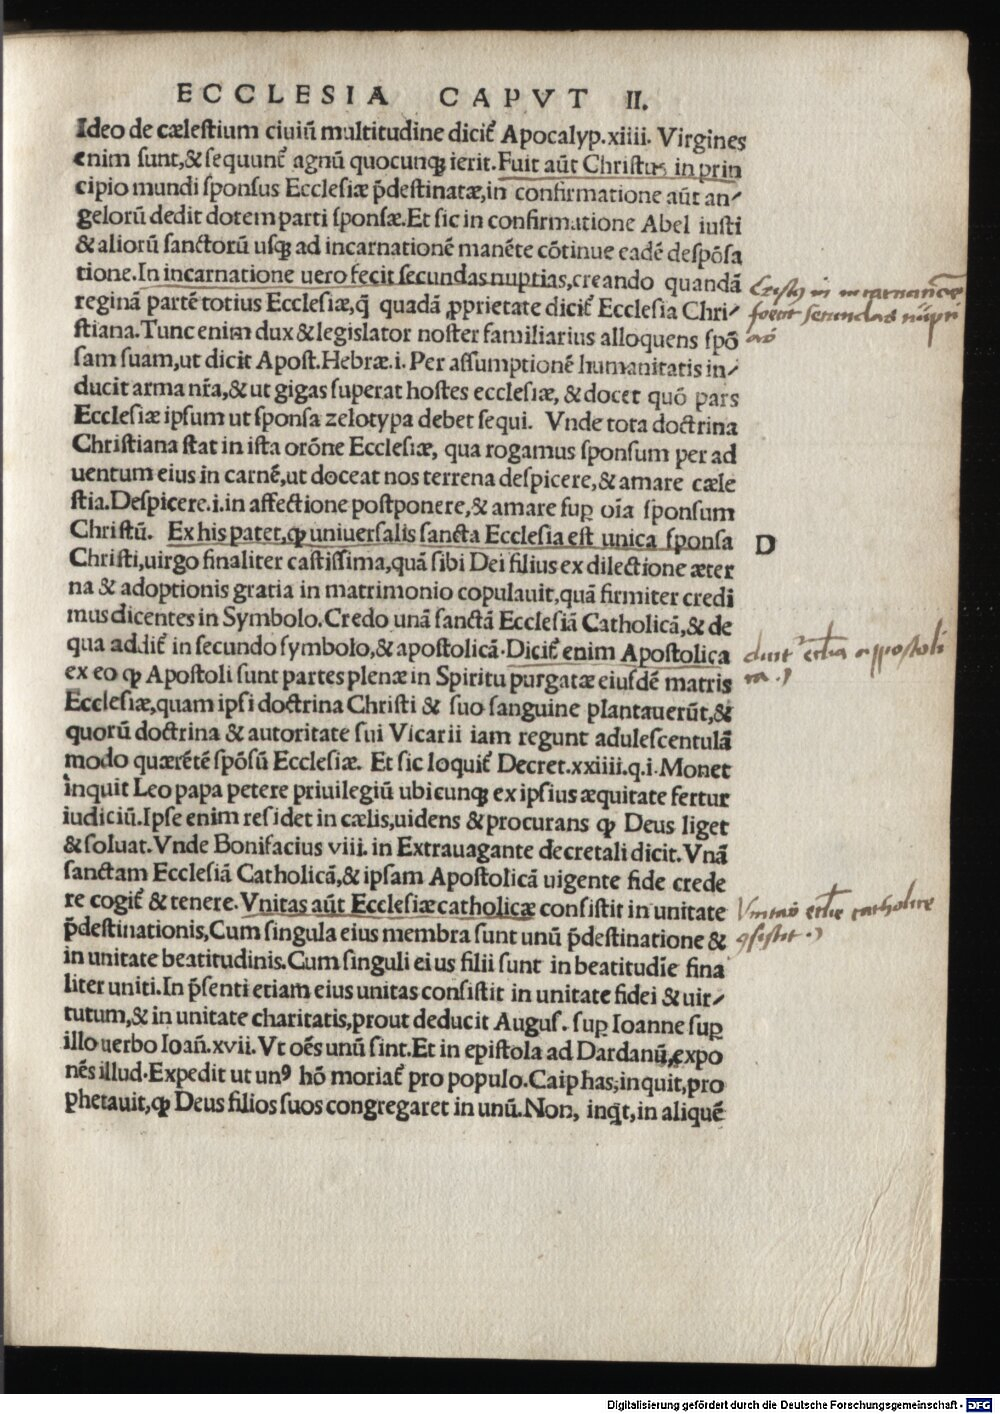 ECCLESIA CAPVT II.
Ideo de cæleſtium ciuiũ multitudine dicit᷑ Apocalyp.xiiii. Virgines
enim ſunt,& ſequunt᷑ agnũ quocunqꝫ ierit.Fuit aũt Chriſtus in prin
cipio mundi ſponſus Eccleſiæ p̃deſtinatæ,in confirmatione aũt an⸗
gelorũ dedit dotem parti ſponſæ.Et ſic in confirmatione Abel iuſti
& aliorũ ſanctorũ uſqꝫ ad incarnationẽ manẽte cõtinue eadẽ deſpõſa
tione.In incarnatione uero fecit ſecundas nuptias,creando quandã
reginã partẽ totius Eccleſiæ,q̃ quadã ꝓprietate dicit᷑ Eccleſia Chri⸗
ſtiana.Tunc enim dux & legislator noſter familiarius alloquens ſpõ
ſam ſuam,ut dicit Apoſt.Hebræ.i. Per aſſumptionẽ humanitatis in⸗
ducit arma nr̃a,& ut gigas ſuperat hoſtes eccleſiæ, & docet quõ pars
Eccleſiæ ipſum ut ſponſa zelotypa debet ſequi. Vnde tota doctrina
Chriſtiana ſtat in iſta orõne Eccleſiæ, qua rogamus ſponſum per ad
uentum eius in carnẽ,ut doceat nos terrena deſpicere,& amare cæle
ſtia.Deſpicere.i.in affectione poſtponere,& amare ſuꝑ oĩa ſponſum
Chriſtũ. Ex his patet,ꝙ uniuerſalis ſancta Eccleſia eſt unica ſponſa
D
Chriſti,uirgo finaliter caſtiſſima,quã ſibi Dei filius ex dilectione æter
na & adoptionis gratia in matrimonio copulauit,quã firmiter credi
mus dicentes in Symbolo.Credo unã ſanctã Eccleſiã Catholicã,& de
qua addit᷑ in ſecundo ſymbolo,& apoſtolicã.Dicit᷑ enim Apoſtolica
ex eo ꝙ Apoſtoli ſunt partes plenæ in Spiritu purgatæ eiuſdẽ matris
Eccleſiæ,quam ipſi doctrina Chriſti & ſuo ſanguine plantauerũt,&
quorũ doctrina & autoritate ſui Vicarii iam regunt adulescentulã
modo quærẽtẽ ſpõſũ Eccleſiæ. Et ſic loquit᷑ Decret.xxiiii.q.i.Monet
inquit Leo papa petere priuilegiũ ubicunqꝫ ex ipſius æquitate fertur
iudiciũ.Ipſe enim reſidet in cælis,uidens & procurans ꝙ Deus liget
& ſoluat.Vnde Bonifacius viii. in Extrauagante decretali dicit.Vnã
ſanctam Eccleſiã Catholicã,& ipſam Apoſtolicã uigente fide crede
re cogit᷑ & tenere.Vnitas aũt Eccleſiæ catholicæ conſiſtit in unitate
p̃deſtinationis,Cum ſingula eius membra ſunt unũ p̃deſtinatione &
in unitate beatitudinis.Cum ſinguli eius filii ſunt in beatitudĩe fina
liter uniti.In p̃ſenti etiam eius unitas conſiſtit in unitate fidei & uir⸗
tutum,& in unitate charitatis,prout deducit Auguſ. ſuꝑ Ioanne ſuꝑ
illo uerbo Ioañ.xvii.Vt oẽs unũ ſint.Et in epiſtola ad Dardanũ,expo
nẽs illud.Expedit ut unꝰ hõ moriat᷑ pro populo.Caiphas,inquit,pro
phetauit,ꝙ Deus filios ſuos congregaret in unũ.Non, inq̃t,in aliquẽ
in incarnac̃oe
fecit secundas nupti
as
appostoli
ca
Vnitas catholice
Digitalisierung gefördert durch die Deutsche Forschungsgemeinschaft - DFG